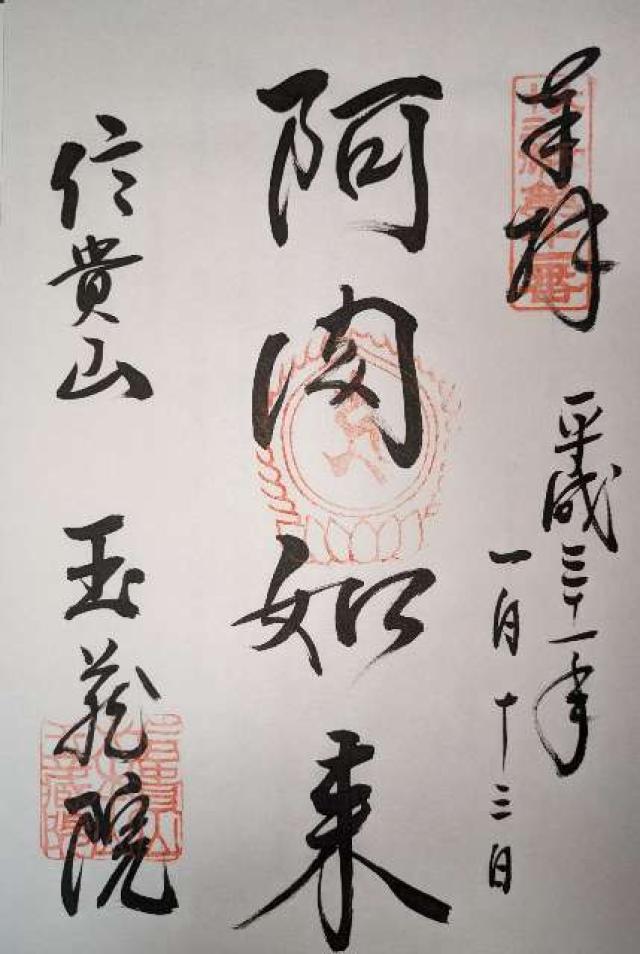 奉拝
平成三十一年
一月十三日
阿閦如来
信貴山 玉蔵院